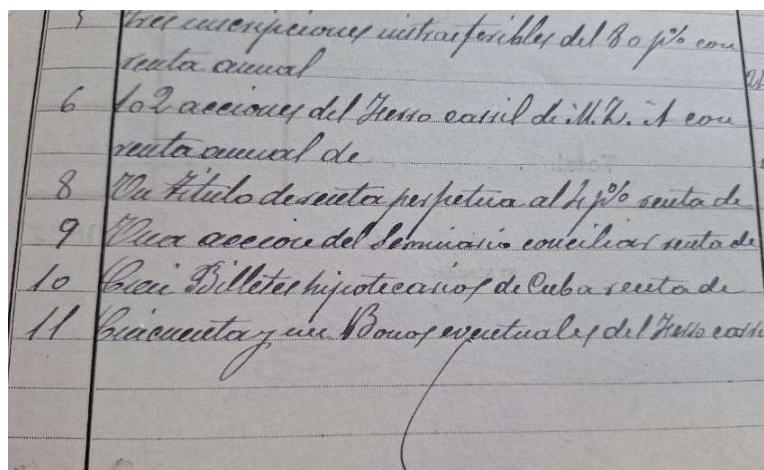 5 Tres inscripciones instrasferibles del 80 p% con
renta anual
6 102 acciones del Ferro carril de M. Z. A con
renta anual de
8 Un Título de renta perpetua al 4 p% renta de
9 Una accion del Seminario conciliar renta de
10 Billetes hipotecarios de Cuba renta de
11 Cincuenta y un Bonos eventuales del Ferro carri